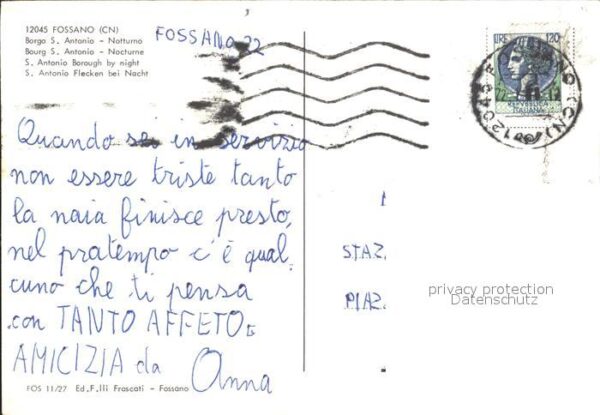 12045 FOSSANO (CN)
Borgo S. Antonio - Notturno
Bourg S. Antonio - Nocturne
S. Antonio Borough by night
S. Antonio Flecken bei Nacht
FOSSANO 22
LIRE 120
12045 FOSSANO (CN)
Quando sei in servizio
non essere triste tanto
la naia finisce presto,
nel pratempo c'è qual_
cuno che ti pensa
con TANTO AFFETO E
AMICIZIA da Anna
STAZ.
PIAZ.
privacy protection
Datenschutz
FOS 11/27 Ed. F.lli Frascati - Fossano